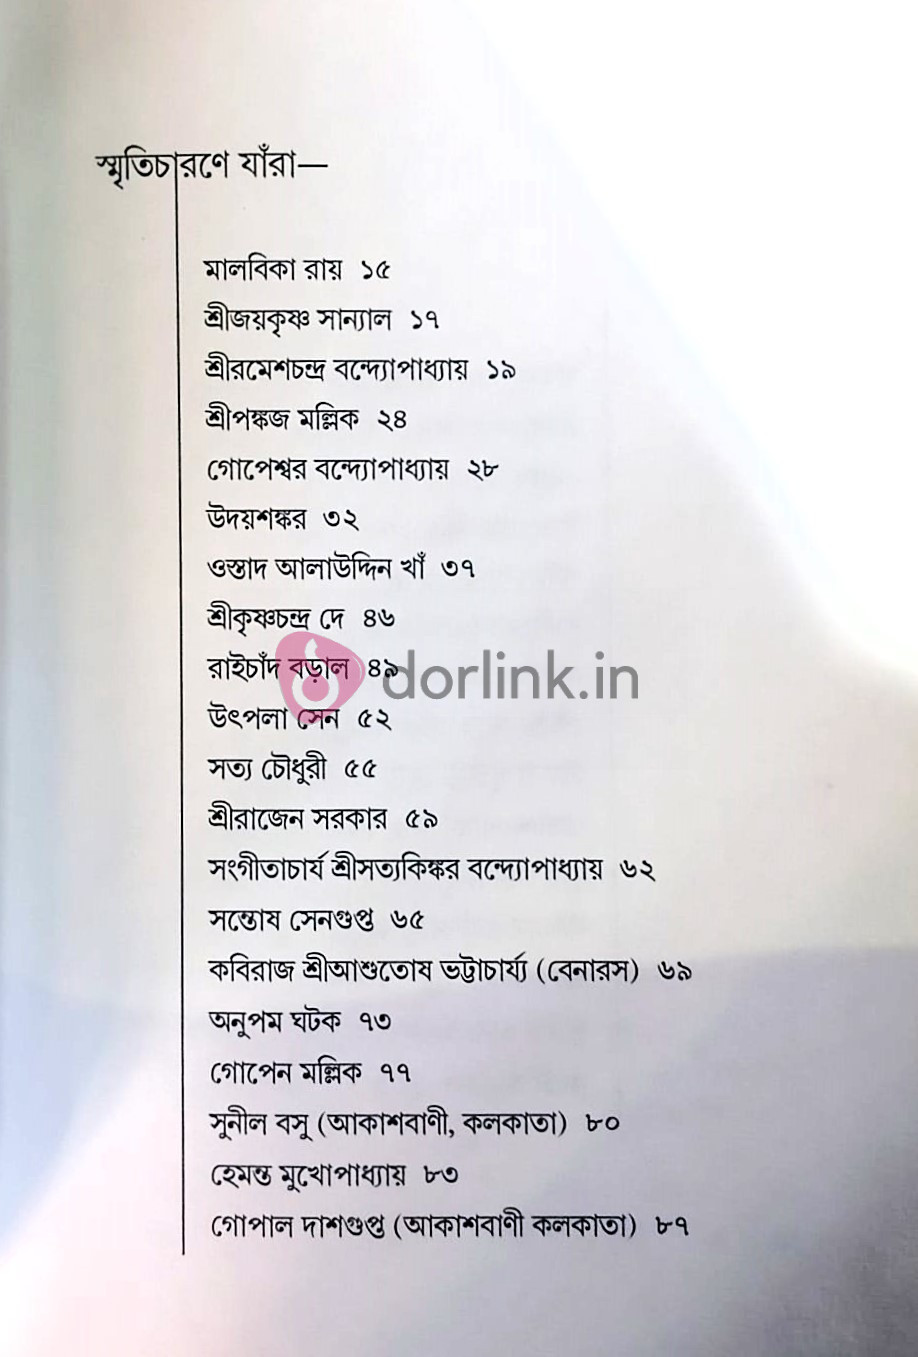 স্মৃতিচারণে যাঁরা—
মালবিকা রায় ১৫
শ্রীজয়কৃষ্ণ সান্যাল ১৭
শ্রীরমেশচন্দ্র বন্দ্যোপাধ্যায় ১৯
শ্রীপঙ্কজ মল্লিক ২৪
গোপেশ্বর বন্দ্যোপাধ্যায় ২৮
উদয়শঙ্কর ৩২
ওস্তাদ আলাউদ্দিন খাঁ ৩৭
শ্রীকৃষ্ণচন্দ্র দে ৪৬
রাইচাঁদ বড়াল ৪৯
dorlink.in
উৎপলা সেন ৫২
সত্য চৌধুরী ৫৫
শ্রীরাজেন সরকার ৫৯
সংগীতাচার্য শ্রীসত্যকিঙ্কর বন্দ্যোপাধ্যায় ৬২
সন্তোষ সেনগুপ্ত ৬৫
কবিরাজ শ্রীআশুতোষ ভট্টাচার্য্য (বেনারস) ৬৯
অনুপম ঘটক ৭৩
গোপেন মল্লিক ৭৭
সুনীল বসু (আকাশবাণী, কলকাতা) ৮০
হেমন্ত মুখোপাধ্যায় ৮৩
গোপাল দাশগুপ্ত (আকাশবাণী কলকাতা) ৮৭